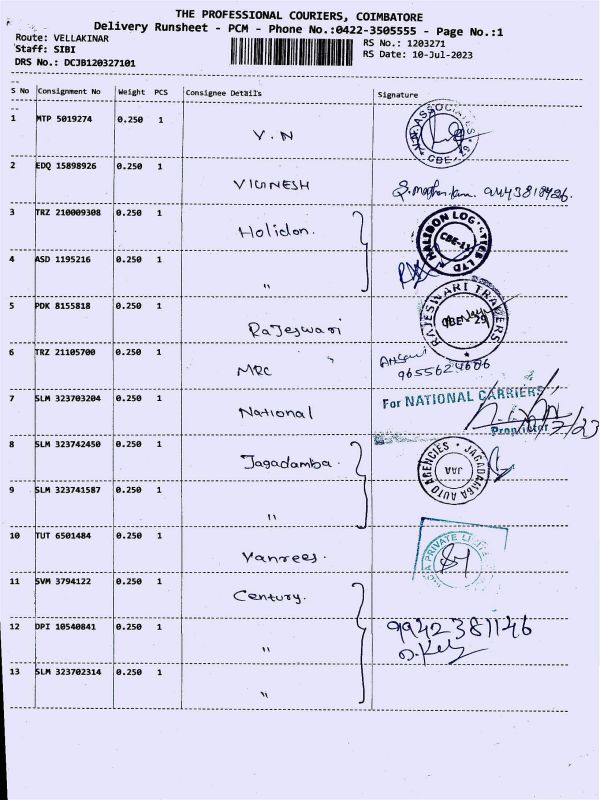 THE PROFESSIONAL COURIERS, COIMBATORE
Delivery Runsheet - PCM - Phone No.:0422-3505555 - Page No.:1
Route: VELLAKINAR
RS No.: 1203271
Staff: SIBI
RS Date: 10-Jul-2023
DRS No.: DCJB120327101
S No Consignment No Weight PCS Consignee Details Signature
1 MTP 5019274 0.250 1 V.N
ASSOCIATES
CBE
2 EDQ 15898926 0.250 1 VIGINESH
3 TRZ 210009308 0.250 1 Holidon.
HALIDON LOGISTICS LTD
CBE-11
4 ASD 1195216 0.250 1 "
5 PDK 8155818 0.250 1 Rajeswari
RAJESWARI TRAVERS
CBE 29
6 TRZ 21105700 0.250 1 MRC "
9655624686
7 SLM 323703204 0.250 1 National
For NATIONAL CARRIERS
Proprietor
8 SLM 323742450 0.250 1 Jagadamba.
JAGADAMBA AUTO AGENCIES
JAA
9 SLM 323741587 0.250 1 "
10 TUT 6501484 0.250 1 Vanrees.
PRIVATE
11 SVM 3794122 0.250 1 Century.
12 DPI 10540841 0.250 1 "
9942381146
13 SLM 323702314 0.250 1 "